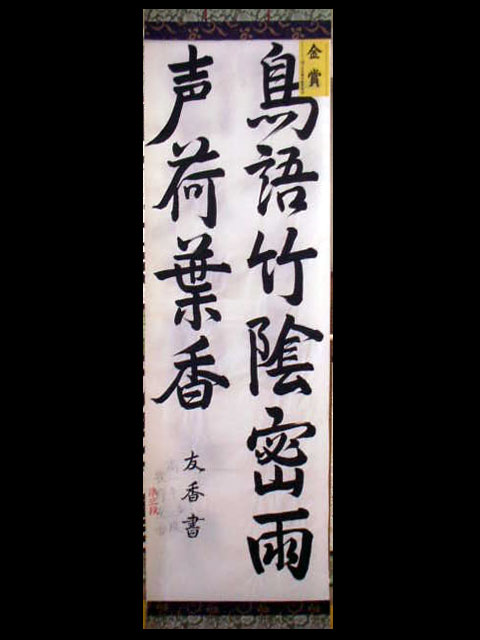 金賞
鳥語竹陰密雨
声荷葉香
友香書